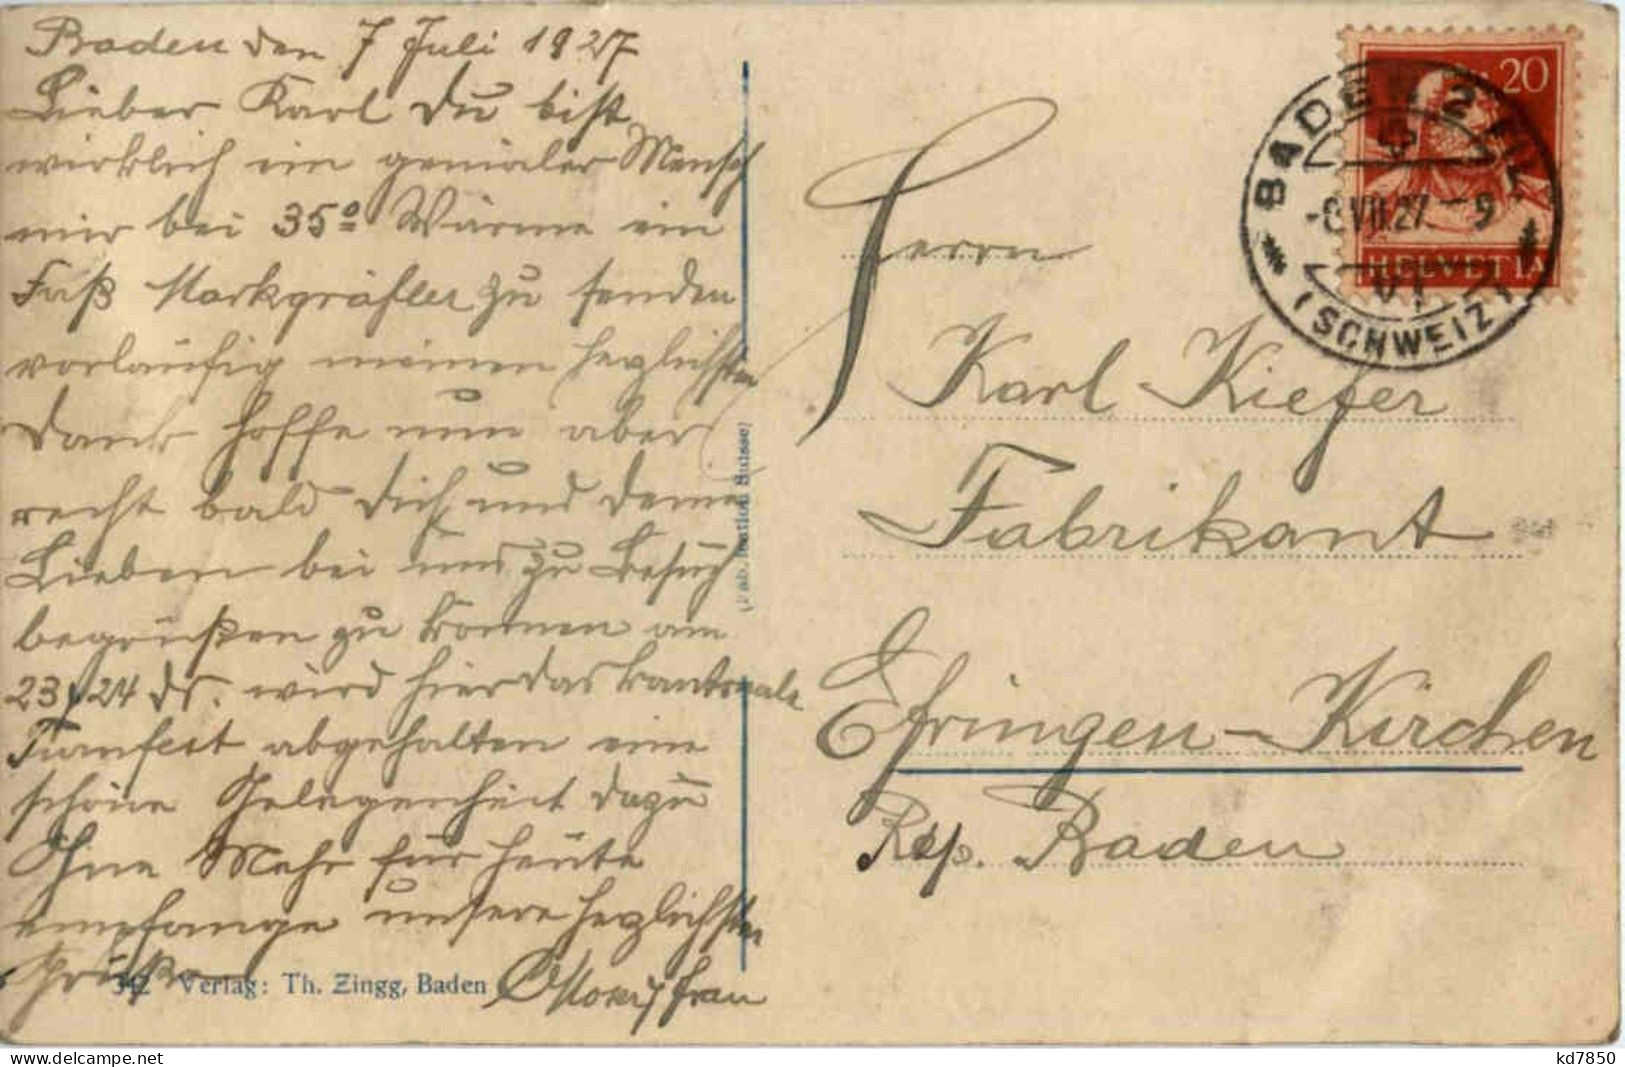 Baden den 7 Juli 1927
Lieber Karl Du bist
wirklich ein genialer Mensch
mir bei 35° Wärme ein
Faß Markgräfler zu senden
vorläufig meinen herzlichsten
Dank hoffe nun aber
recht bald Dich und Deine
Lieben bei uns zu Besuch
begrüßen zu können am
23/24 ds. wird hier das kantonale
Turnfest abgehalten eine
schöne Gelegenheit dazu
Ohne Mehr für heute
empfange unsere herzlichsten
Grüße
Frau
342 Verlag: Th. Zingg, Baden
Herrn
Karl Kiefer
Fabrikant
Efringen-Kirchen
Rep. Baden
20
HELVETIA
BADEN 2
-8.VII.27 9
VI
(SCHWEIZ)
delcampe.net
kd7850